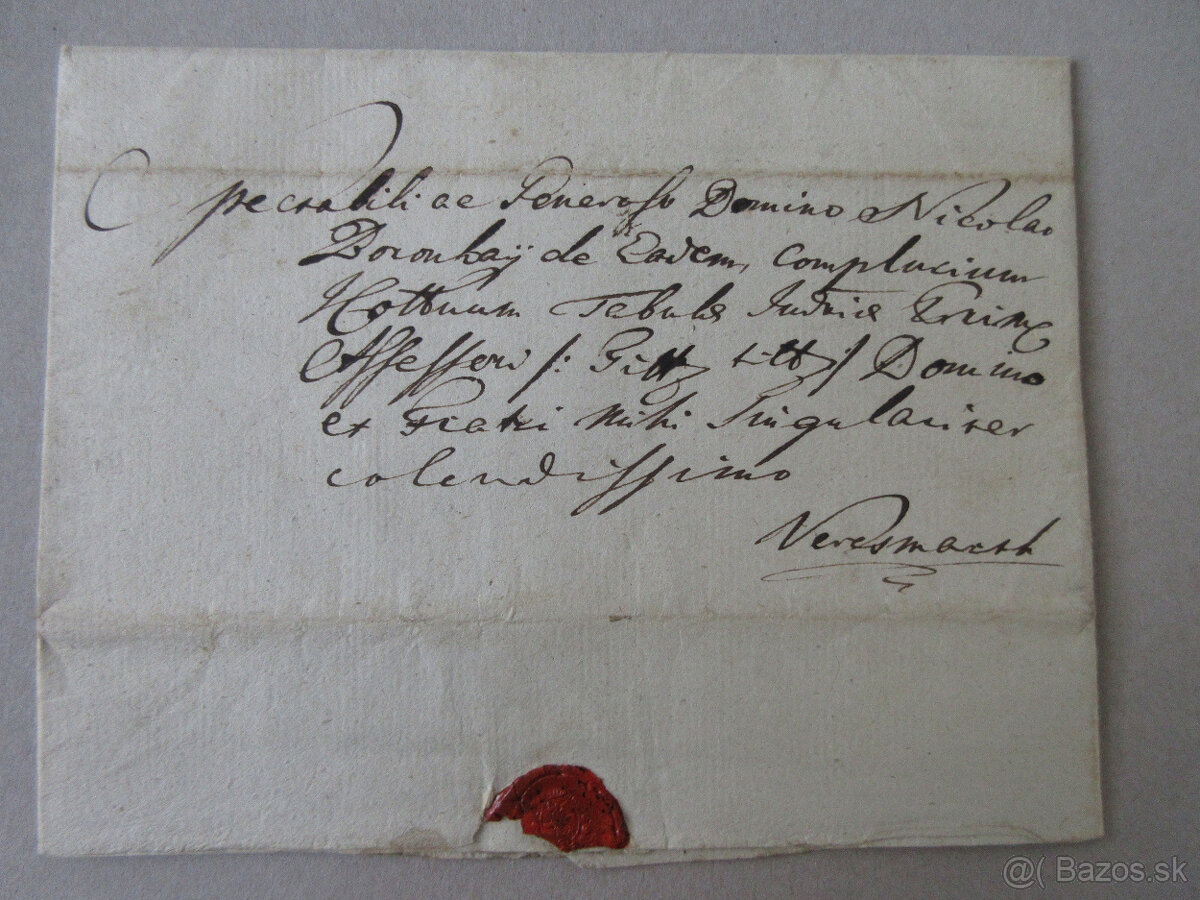 Spectabili ac Generoso Domino Nicolao
Boronkaÿ de Eadem, Complurium
Cottuum Tabulæ Judriæ
Assessori /: Titt titt :/ Domino
et Fratri mihi Singulariter
colendissimo
Veresmarth
@( Bazos.sk